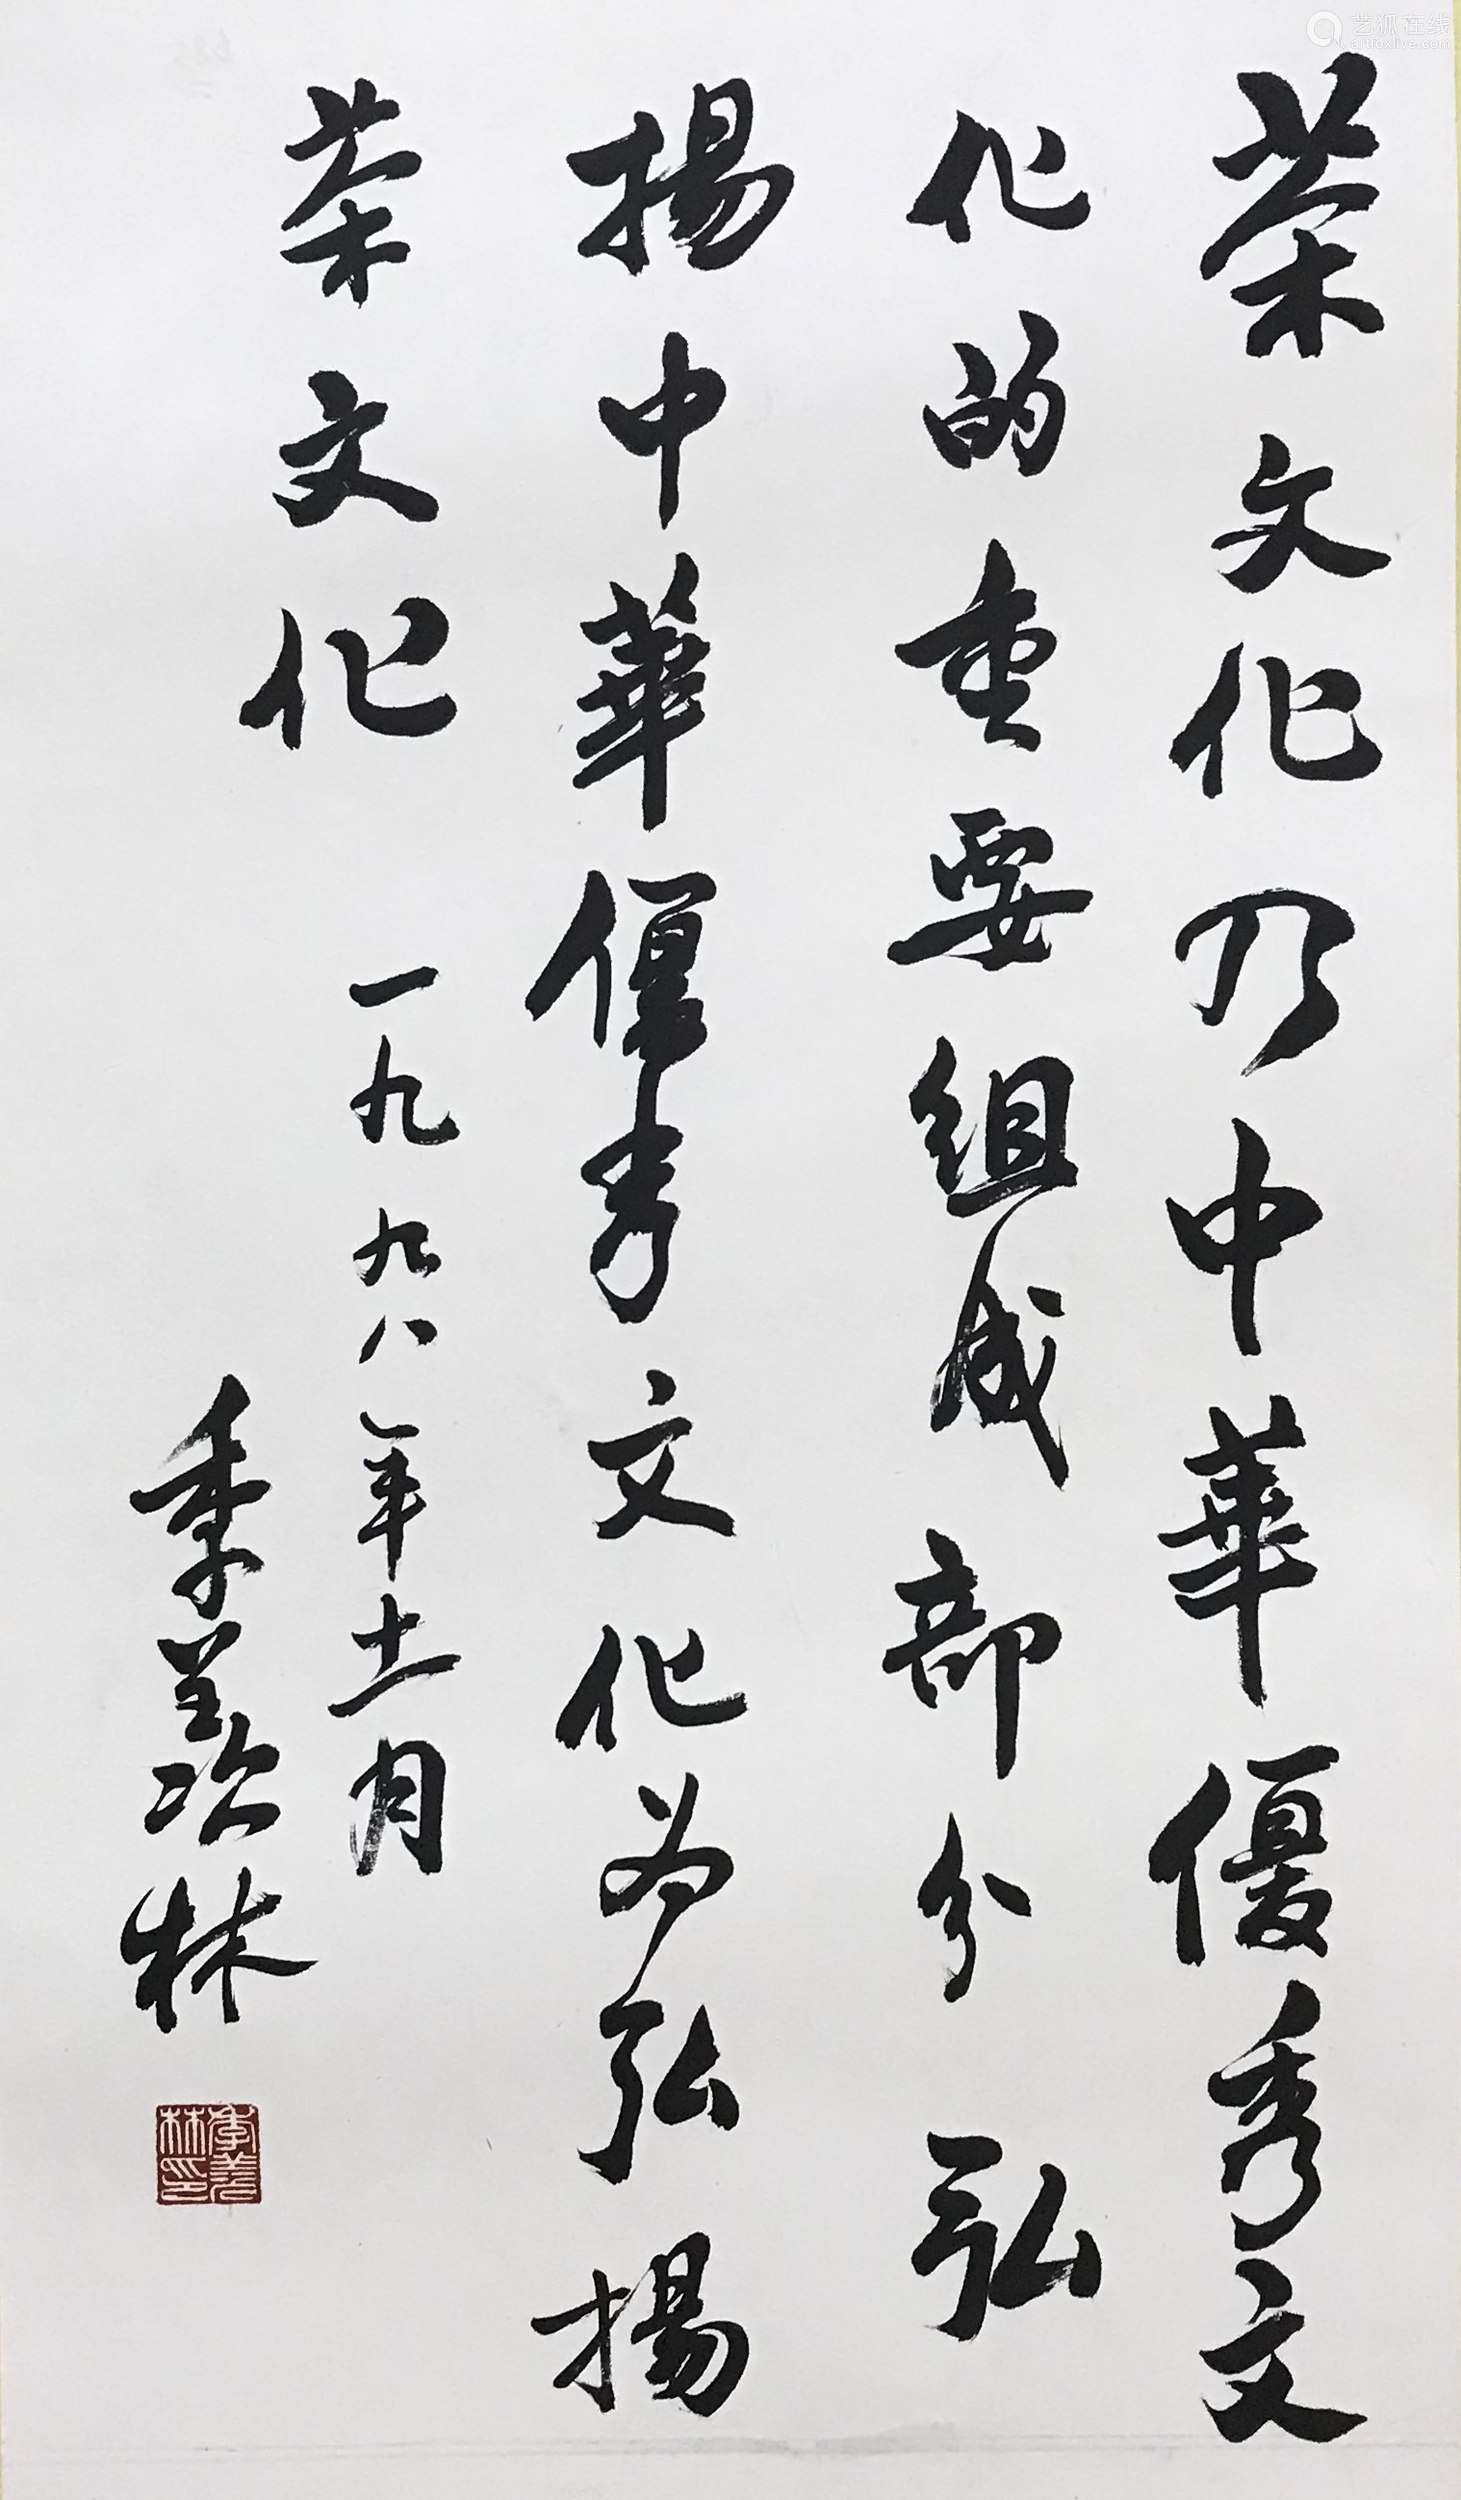 茶文化乃中華優秀文
化的重要組成部分弘
揚中華優秀文化为弘揚
茶文化
一九九八年十一月
季羡林
季羡林印
艺狐在线
artfoxlive.com